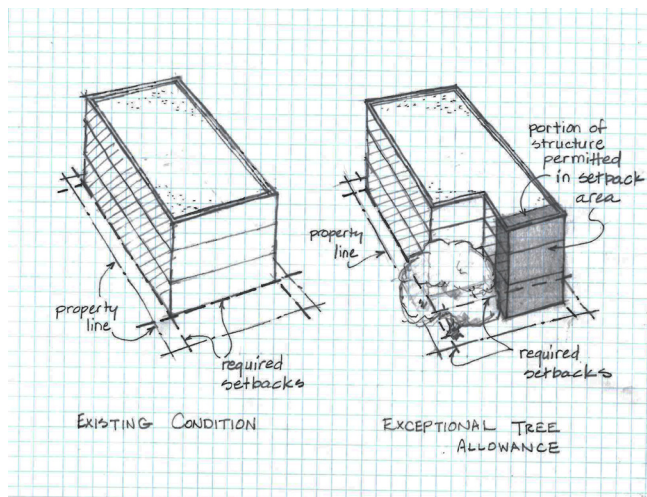 property
line
required
setbacks
EXISTING CONDITION
portion of
structure
permitted
in setpack
area
property
line
required
setbacks
EXCEPTIONAL TREE
ALLOWANCE